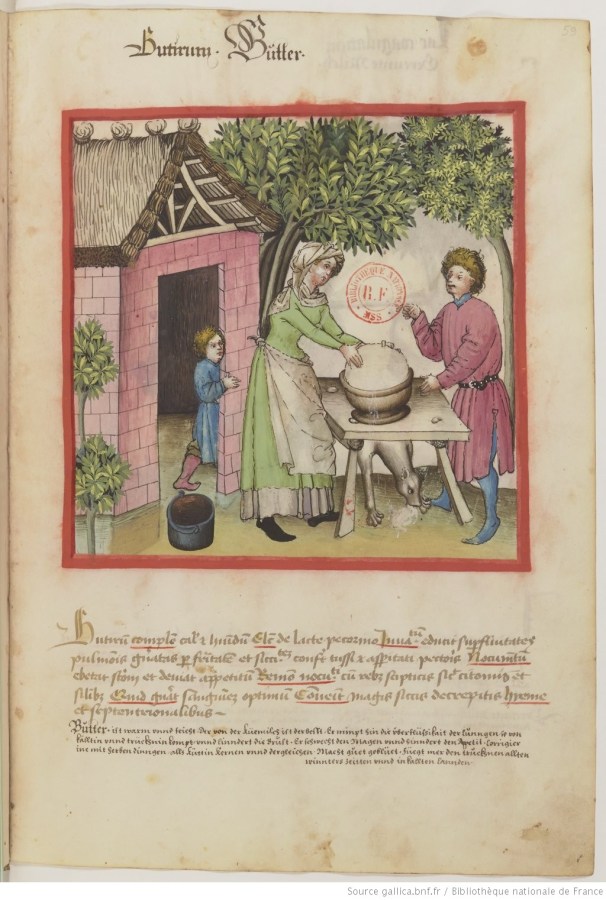 59
Butirum · Bütter·
BIBLIOTHEQUE NATIONALE
B.F
MSS
Butirū complō cal' & humidum Elcō de lacte pecorino Iuuatū educit supfluitates
pulmonis
et siccitatē confert tussi & asperitati pectoris Nocumtū
ebetat stom et
appetitum Remō nocū cū rebus stipticis
Quid
sanguinez optimum Conuēit magis siccis decrepitis hyeme
et septentrionalibus ~
Bütter · ist warm vnnd feicht · Der von der küemilch ist der best · Er nimpt hin die überflüssikait der lüngen
von
keltin vnnd trücknin kompt · vnnd lindert die brust · Er schwecht den Magen vnnd hindert den Apetit · Corrigier
ine mit herben dingen ·
vnnd dergleichen · Macht güet geblüet · Füegt mer den trücknen allten
winnters zeitten vnnd in kallten Lannden ·
Source gallica.bnf.fr / Bibliothèque nationale de France